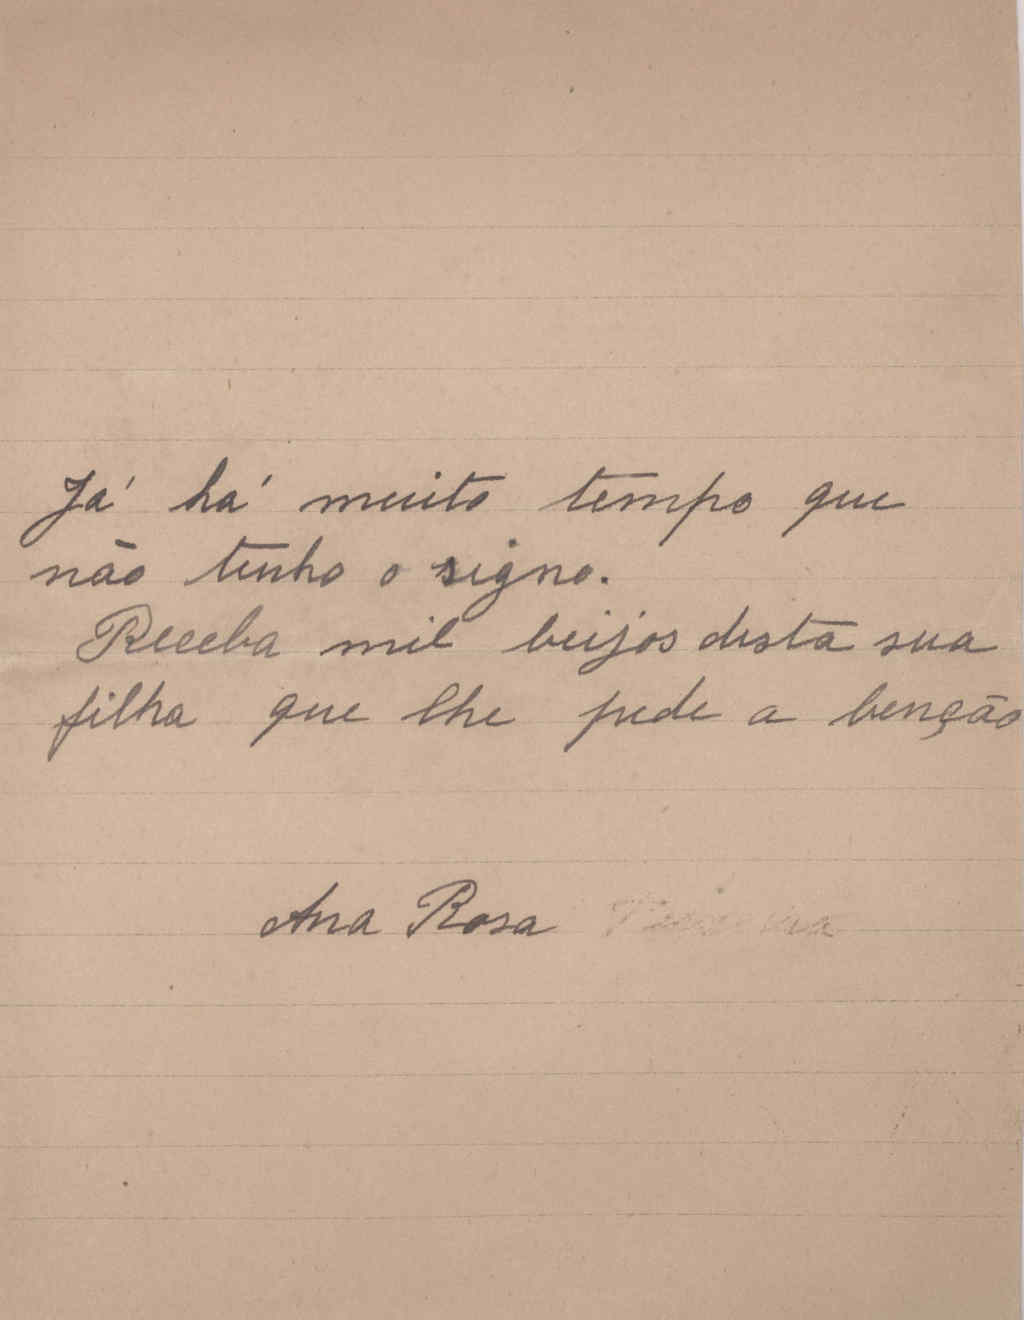 Já há muito tempo que
não tenho o signo.
Receba mil beijos desta sua
filha que lhe pede a benção
Ana Rosa